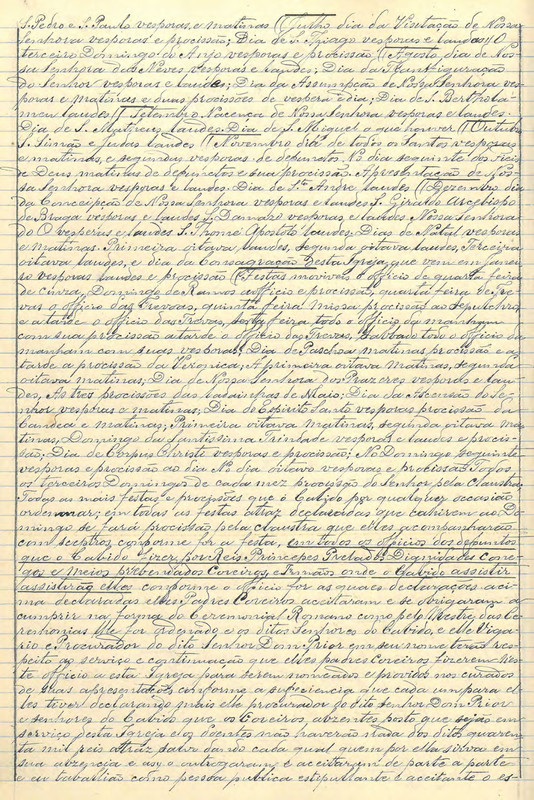 S. Pedro e S. Paulo vesporas, e matinas // Julho dia da Visitação de Nossa
Senhora vesporas e procissão; Dia de S. Thiago vesporas e laudes // O
terceiro Domingo do Anjo vesporas e procissão // Agosto, dia de Nos-
sa Senhora das Neves vesporas e laudes; Dia da Transfiguração
do Senhor vesporas e laudes; Dia da Assumpção de Nossa Senhora ves-
poras e matinas e duas procissões de vespera e dia; Dia de S. Bertholo-
meu laudes // Setembro Nacença de Nossa Senhora vesporas e laudes;
Dia de S. Matheus, laudes. Dia de S. Miguel o que houver // Outubro
S. Simão e Judas laudes // Novembro dia de todos os Santos vesporas
e matinas, e segundas vesporas de depunctos. No dia seguinte dos Fieis
de Deus matinas de depunctos e sua procissão. Apresentação de Nos-
sa Senhora vesporas e laudes. Dia de S.to André laudes // Dezembro dia
da Conceipção de Nossa Senhora vesporas e laudes S. Giraldo Arcebispo
de Braga vesporas e laudes S. Damazo vesporas, e laudes Nossa Senhora
do O vesperas e laudes S. Thomé Apostolo laudes, Dias de Natal vesporas
e matinas Primeira oitava laudes, segunda oitava laudes, Terceira
oitava laudes, e dia da Consagração desta Igreja que vem em Janei
ro vesporas laudes e procissão // Festas moviveis. O officio de quarta feira
de Cinza, Domingo de Ramos o officio e procissão, quarta feira de Tre-
vas o officio das Trevoas, quinta feira missa procissão ao sepulchro
e atarde o officio das Trevas, sexta feira todo o officio da manham
com sua procissão atarde o officio das Trevas, Sabbado todo o officio da
manham com suas vesporas, Dia de Paschoa matinas procissão e a
tarde a procissão da Veronica; A primeira oitava Matinas, segunda
oitava matinas; Dia de Nossa Senhora dos Prazeres vesporas e lau-
des, As tres procissões das ladainhas de Maio; Dia da Ascensão do Se-
nhor vesporas e matinas; Dia do Espirito Santo vesporas procissão da
Candea e matinas; Primeira oitava matinas, segunda oitava ma-
tinas, Domingo da Santissima Trindade vesporas, e laudes e procis-
são; Dia de Corpus Christi vesporas e procissão; No Domingo seguinte
vesporas e procissão ao dia No dia oitavo vesporas e procissão Todos
os terceiros Domingos de cada mez procissão do Senhor pela Claustra
Todas as mais festas e procissões que o Cabido por qualquer occasião
ordenar; em todas as festas atraz declaradas que cahirem ao Do-
mingo se fará procissão pela claustra que elles acompanharão
com sceptros, conforme for a festa, em todos os officios dos depuntos
que o Cabido fizer, por Reis Principes Prelados Dignidades Cone-
gos, e meios prebendados Coreiros, e Irmãos onde o Cabido assistir
assistirão elles conforme o officio for as quaes declarações aci-
ma declaradas elles Padres Coreiros aceitaram e se obrigaram a
cumprir na forma do Ceremonial Romano como pelo Mestre das Ce
remonias lhe for ordenado e os ditos Senhores do Cabido, e elle Viga-
rio e Procurador do dito Senhor Dom Prior em seu nome terão res-
peito ao serviço e continuação que elles padres Coreiros fizerem nes-
te officio a esta Igreja para serem nomeados e providos nos curados
de suas apresentações conforme a sufficiencia que cada um para el-
les tiver declarando mais elle procurador do dito Senhor Dom Prior
e senhores do Cabido que os Coreiros, absentes posto que sejão em
serviço desta Igreja e os doentes não haverão nada dos ditos quaren-
ta mil reis atraz salvo dando cada qual quem por ella sirva em
sua abzencia e asy o outrogaram e aceitaram de parte a parte
e eu taballião como pessoa publica estipullante e aceitante o es-